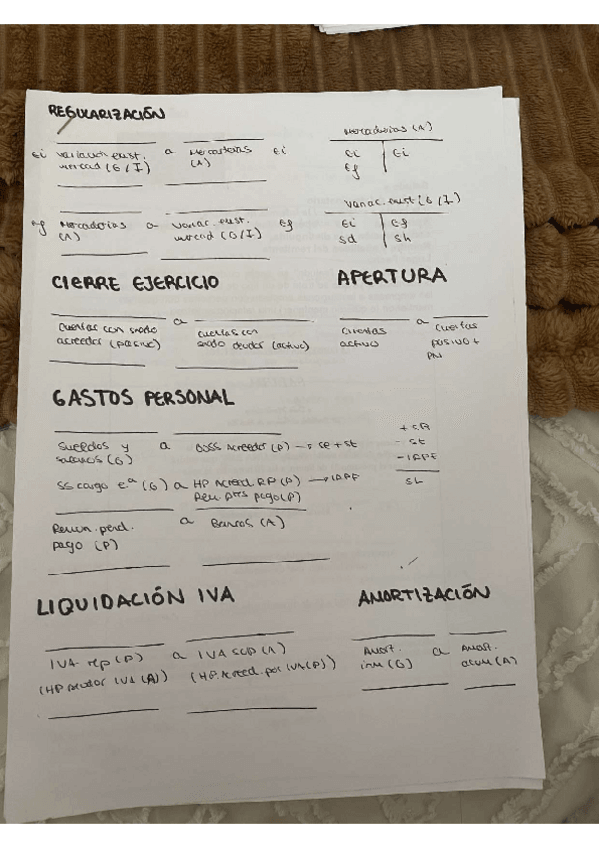 REGULARIZACIÓN
Ei Variación exist. a Mercaderías Ei
mercad (G/I) (A)
Mercaderías (A)
Ei Ei
Ef
Ef Mercaderías a Variac. exist. Ef
(A) mercad (G/I)
Variac. exist (G/I)
Ei Ef
sd sh
CIERRE EJERCICIO
cuentas con saldo a cuentas con
acreedor (pasivo) saldo deudor (activo)
APERTURA
cuentas a cuentas
activo pasivo +
PN
GASTOS PERSONAL
Sueldos y a OOSS Acreedor (P) → se + st
salarios (G)
SS cargo e.ª (G) a HP Acreed. RP (P) → IRPF
pago (P)
+ SB
- St
- IRPF
SL
pend. a Bancos (A)
pago (P)
LIQUIDACIÓN IVA
IVA rep (P) a IVA sop (A)
(HP deudor IVA (A)) (HP. Acreed. por IVA (P))
AMORTIZACIÓN
Amort. a Amort.
inm (G) acum (A)